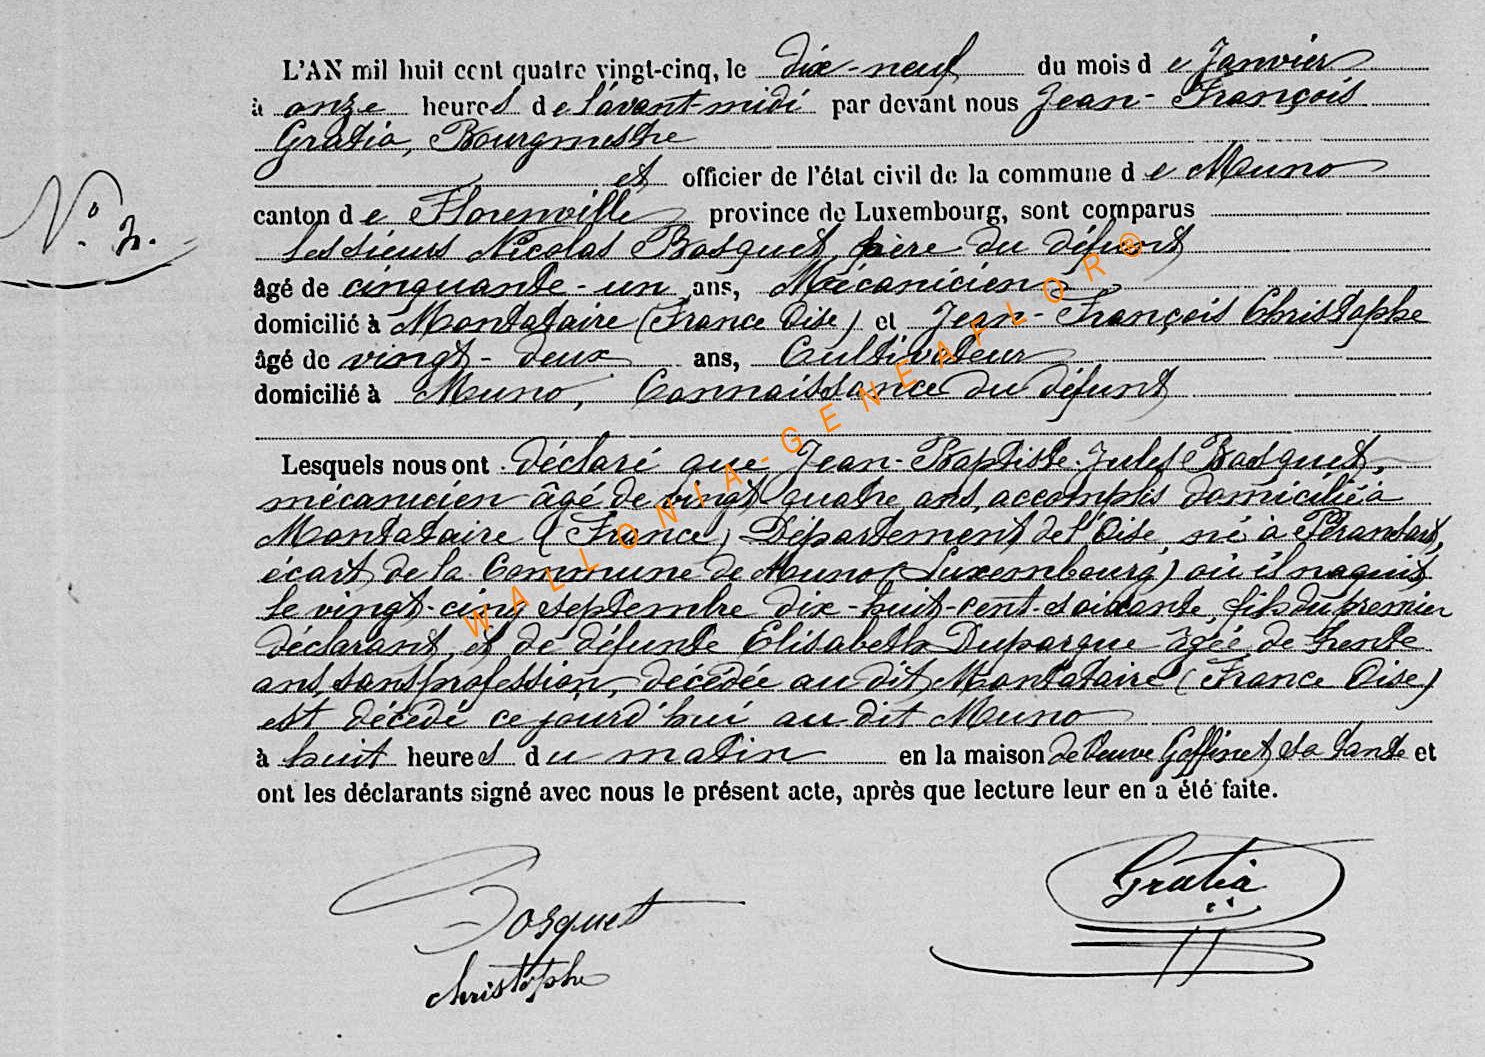 L'AN mil huit cent quatre vingt-cinq, le dix-neuf du mois de Janvier
à onze heures de l'avant-midi par devant nous Jean-François
Gratia, Bourgmestre
et officier de l'état civil de la commune de Muno
canton de Florenville province de Luxembourg, sont comparus
les sieurs Nicolas Bosquet, père du défunt
âgé de cinquante-un ans, Mécanicien
domicilié à Montataire (France Oise) et Jean-François Christophe
âgé de vingt-deux ans, Cultivateur
domicilié à Muno, Connaissance du défunt
Lesquels nous ont déclaré que Jean-Baptiste-Jules Bosquet,
mécanicien âgé de vingt quatre ans, accomplis domicilié à
Montataire (France) Département de l'Oise, né à
écart de la Commune de Muno (Luxembourg) où il naquit
le vingt-cinq septembre dix-huit-cent-soixante, fils du premier
déclarant, et de défunte Elisabeth Duparque âgée de trente
ans, sans profession, décédée au dit Montataire (France Oise)
est décédé ce jourd'hui au dit Muno
à huit heures du matin en la maison de Veuve Goffinet sa tante et
ont les déclarants signé avec nous le présent acte, après que lecture leur en a été faite.
N°. 2.
Bosquet
Gratia
christophe
WALLONIA-GENEAFLOR®